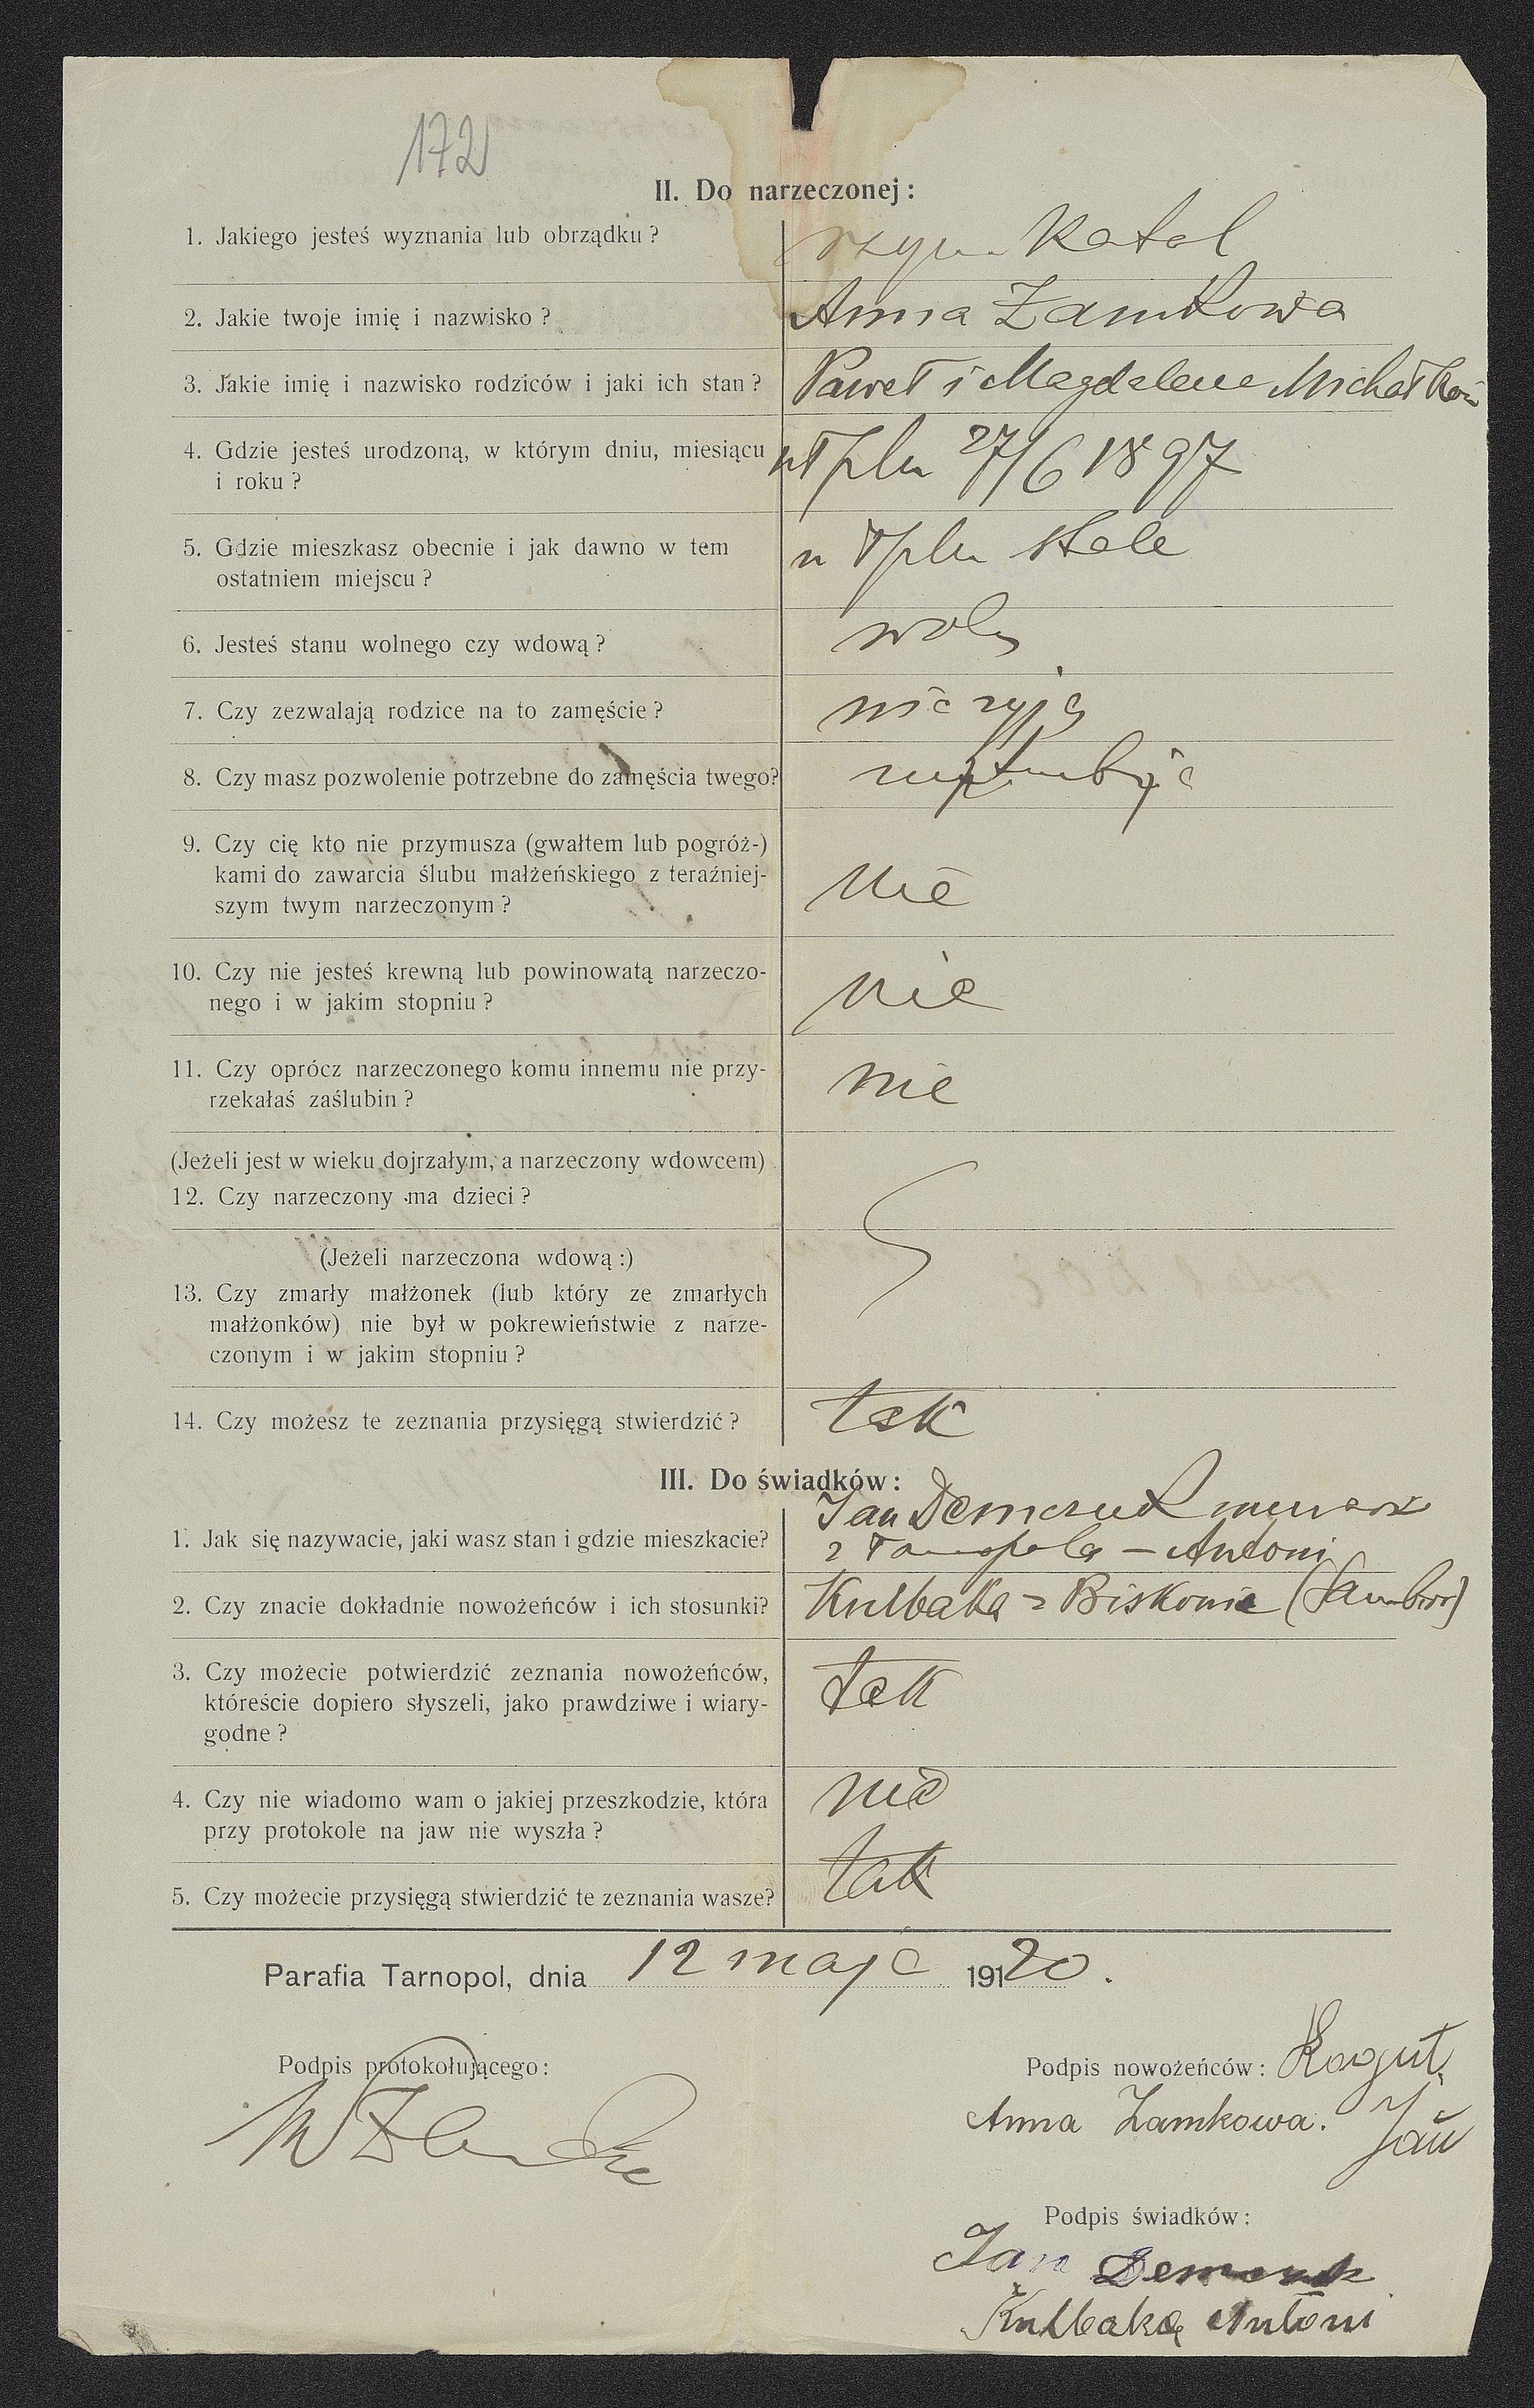 172
II. Do narzeczonej:
1. Jakiego jesteś wyznania lub obrządku?
rzym. Katol
2. Jakie twoje imię i nazwisko?
Anna Zamkowa
3. Jakie imię i nazwisko rodziców i jaki ich stan?
Paweł i Magdalena
4. Gdzie jesteś urodzoną, w którym dniu, miesiącu
i roku?
w Tplu 27/6 1897
5. Gdzie mieszkasz obecnie i jak dawno w tem
ostatniem miejscu?
w Tplu stale
6. Jesteś stanu wolnego czy wdową?
7. Czy zezwalają rodzice na to zamęście?
nie żyją
8. Czy masz pozwolenie potrzebne do zamęścia twego?
9. Czy cię kto nie przymusza (gwałtem lub pogróż-)
kami do zawarcia ślubu małżeńskiego z teraźniej-
szym twym narzeczonym?
nie
10. Czy nie jesteś krewną lub powinowatą narzeczo-
nego i w jakim stopniu?
nie
11. Czy oprócz narzeczonego komu innemu nie przy-
rzekałaś zaślubin?
nie
(Jeżeli jest w wieku dojrzałym, a narzeczony wdowcem)
12. Czy narzeczony ma dzieci?
(Jeżeli narzeczona wdową:)
13. Czy zmarły małżonek (lub który ze zmarłych
małżonków) nie był w pokrewieństwie z narze-
czonym i w jakim stopniu?
14. Czy możesz te zeznania przysięgą stwierdzić?
tak
III. Do świadków:
Jan Demczuk murarz
1. Jak się nazywacie, jaki wasz stan i gdzie mieszkacie?
z Tarnopola – Antoni
2. Czy znacie dokładnie nowożeńców i ich stosunki?
Kulbaka z Biskowic (Sambor)
3. Czy możecie potwierdzić zeznania nowożeńców,
któreście dopiero słyszeli, jako prawdziwe i wiary-
godne?
tak
4. Czy nie wiadomo wam o jakiej przeszkodzie, która
przy protokole na jaw nie wyszła?
nie
5. Czy możecie przysięgą stwierdzić te zeznania wasze?
tak
Parafia Tarnopol, dnia 12 maja 19120.
Podpis protokołującego:
Podpis nowożeńców: Kogut
Anna Zamkowa. Jan
Podpis świadków:
Jan Demczuk
Kulbaka Antoni